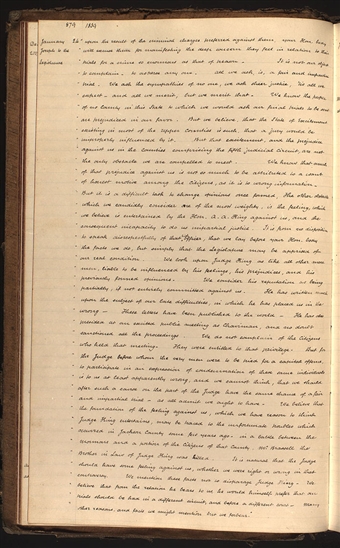 474 1839
January 24th upon the result of the criminal charges preferred against them, your Hon. body
Joseph to the will excuse them for manifesting the deep concern they feel in relation to the
Legislature trials for a crime so enormous as that of treason. It is not our object
to complain, to asperse any one. All we ask is, a fair and impartial
trial. We ask the sympathies of no one, we ask sheer justice, 'tis all we
expect, and all we merit, but we merit that. We know the people
of no county in this State to which we would ask our final trials to be sent
are prejudiced in our favor. But we believe that the State of excitement
existing in most of the upper counties is such, that a jury would be
improperly influenced by it. But that excitement, and the prejudice
against us in the counties comprising the fifth judicial Circuit, are not
the only obstacle we are compelled to meet. We know that much
of that prejudice against us is not so much to be attributed to a want
of honest motives among the citizens, as it is to wrong information.
But it is a difficult task to change opinions once formed. The other obstacle
which we candidly consider one of the most weighty, is the feeling, which
we believe is entertained by the Hon. A. A. King against us, and the
consequent incapacity to do us impartial justice. It is from no disposition
to speak disrespectfully of that Officer, that we lay before your Hon. body
the facts we do, but simply that the Legislature may be apprised of
our real condition. We look upon Judge King as like all other mere
men, liable to be influenced by his feelings, his prejudices, and his
previously formed opinions. We consider his reputation as being
partially, if not entirely committed against us. He has written much
upon the subject of our late difficulties, in which he has placed us in the
wrong — These letters have been published to the world — He has also
presided at an excited public meeting as Chairman, and no doubt
sanctioned all the proceedings — We do not complain of the Citizens
who held that meeting. They were entitled to that privilege. But for
the Judge before whom the very men were to be tried for a capital offence,
to participate in an expression of condemnation of these same individuals
is to us at least apparently wrong, and we cannot think, that we should
after such a course on the part of the Judge have the same chance of a fair
and impartial trial — as all admit we ought to have. We believe that
the foundation of the feeling against us, which we have reason to think
Judge King entertains, may be traced to the unfortunate troubles which
occurred in Jackson County some few years ago. in a battle between the
Mormons and a portion of the Citizens of that County, Mr Brazeale the
Brother in Law of Judge King was killed. It is natural that the Judge
should have some feeling against us, whether we were right or wrong in that
controversy. We mention these facts not to disparage Judge King. We
believe that from the relation he bears to us he would himself prefer that our
trials should be had in a different circuit, and before a different court. Many
other reasons, and facts we might mention but we forbear